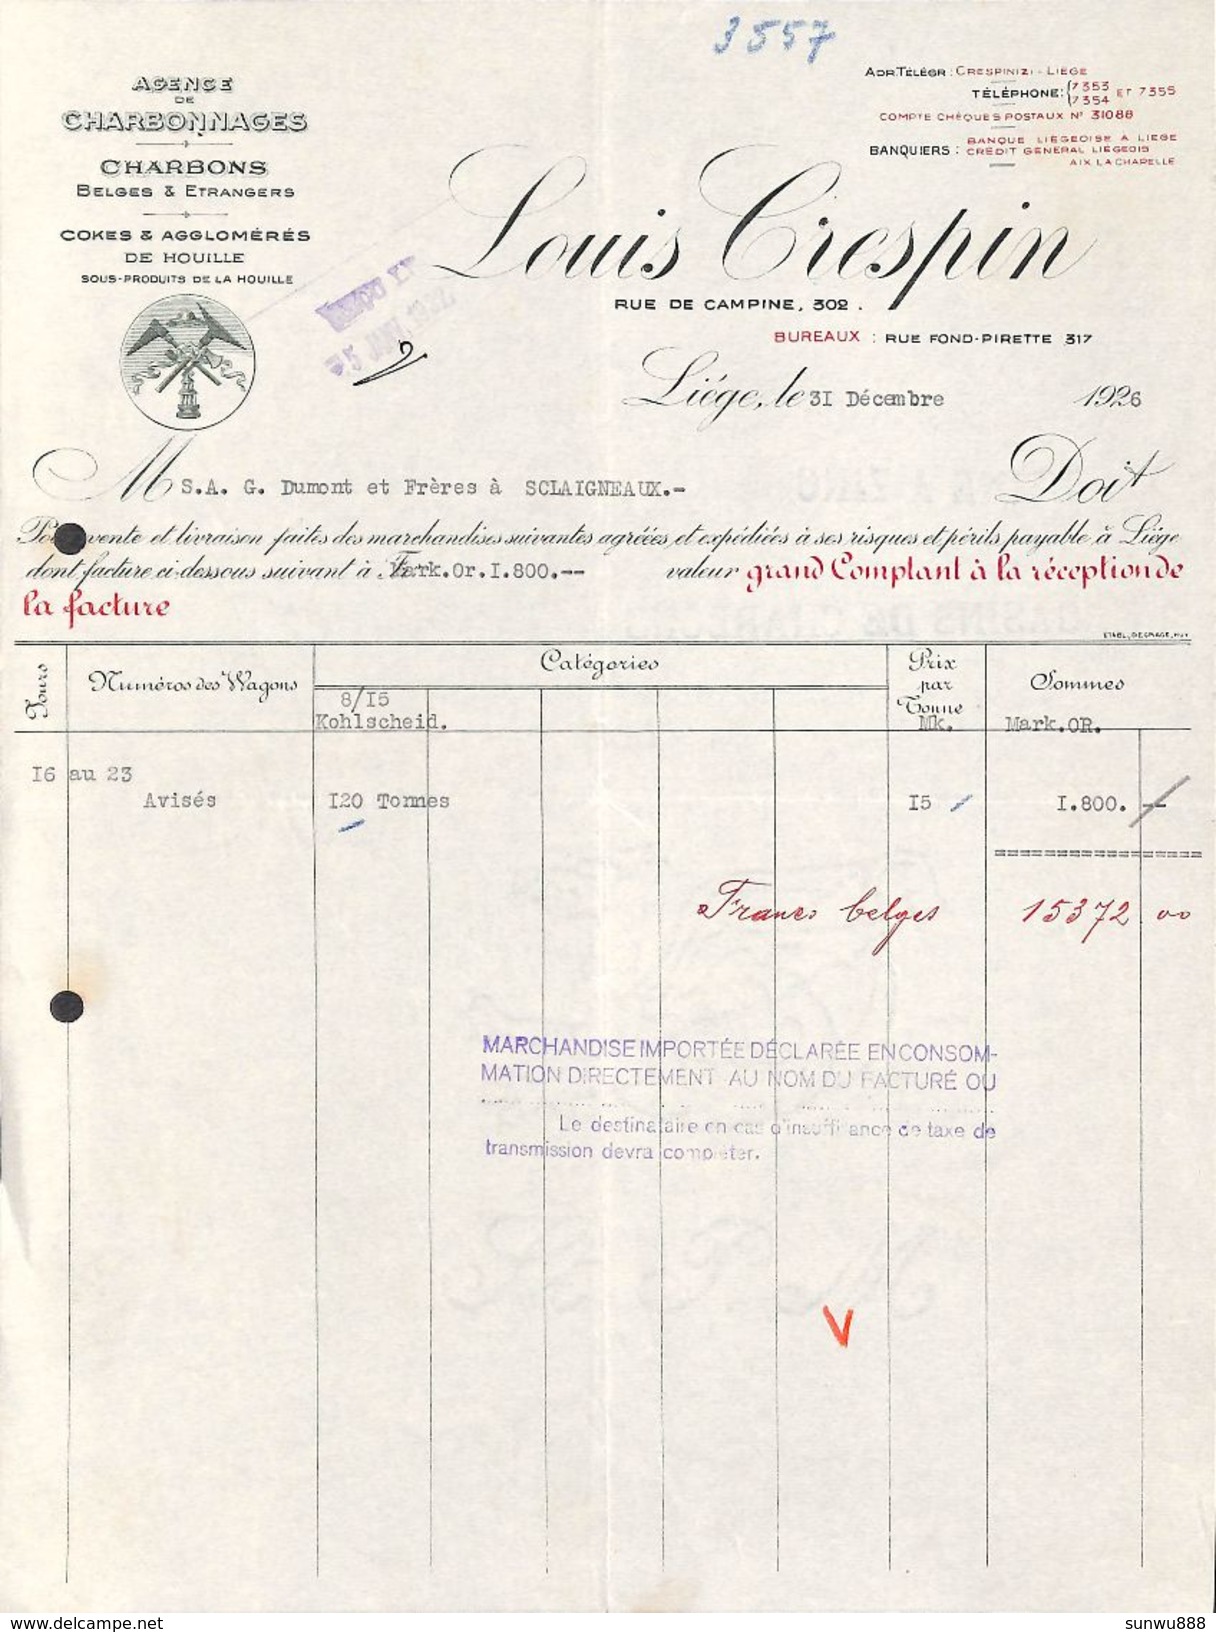 3557
AGENCE
DE
CHARBONNAGES
CHARBONS
BELGES & ETRANGERS
COKES & AGGLOMÉRÉS
DE HOUILLE
SOUS-PRODUITS DE LA HOUILLE
ADR. TÉLÉGR : CRESPINIZI - LIÉGE
TÉLÉPHONE: 7353 7354 ET 7355
COMPTE CHÈQUES POSTAUX N° 31088
BANQUIERS : BANQUE LIÉGEOISE A LIEGE
CRÉDIT GÉNÉRAL LIÉGEOIS
AIX LA CHAPELLE
Louis Crespin
RUE DE CAMPINE, 302 .
BUREAUX : RUE FOND-PIRETTE 317
5 JANV.
Liége, le 3I Décembre 1926
M S.A. G. Dumont et Frères à SCLAIGNEAUX.-
Doit
vente et livraison faites des marchandises suivantes agréées et expédiées à ses risques et périls payable à Liége
dont facture ci-dessous suivant à Mark.Or.I.800.-- valeur grand Comptant à la réception de
la facture
ETABL. DEGRACE, HUY
Jours
Numéros des Wagons
Catégories
Prix
par
Tonne
Sommes
8/I5
Kohlscheid.
Mk.
Mark.OR.
I6 au 23
Avisés I20 Tonnes I5 I.800. --
====================
Francs belges 15372 00
MARCHANDISE IMPORTÉE DÉCLARÉE EN CONSOM-
MATION DIRECTEMENT AU NOM DU FACTURÉ OU
Le destinataire en cas d'insuffisance de taxe de
transmission devra compléter.
V
sunwu888